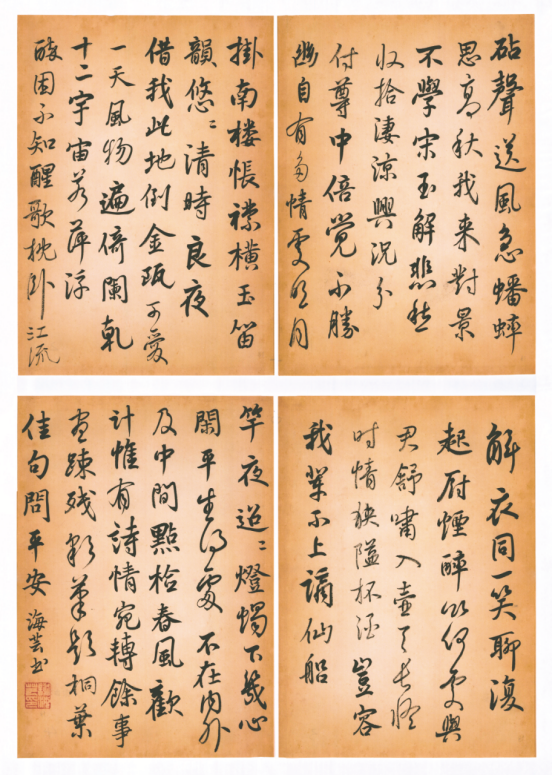 砧聲送風急蟠蟀
思高秋我來對景
不學宋玉解悲愁
收拾淒涼興況分
付尊中倍覺不勝
幽自有多情處明月
掛南樓悵襟橫玉笛
韻悠〻清時良夜
借我此地倒金甌可愛
一天風物遍倚闌乾
十二宇宙若萍浮
醉困不知醒歌枕卧江流
解衣同一笑聊復
起厨煙醉以何處與
君舒嘯入壺天長怪
时情狹隘杯酒豈容
我輩不上謫仙船
竿夜迢〻燈燭下幾心
閑平生得處不在內外
及中間點檢春風歡
計惟有詩情宛轉餘事
盡疎殘彩筆題桐葉
佳句問平安 海芸书